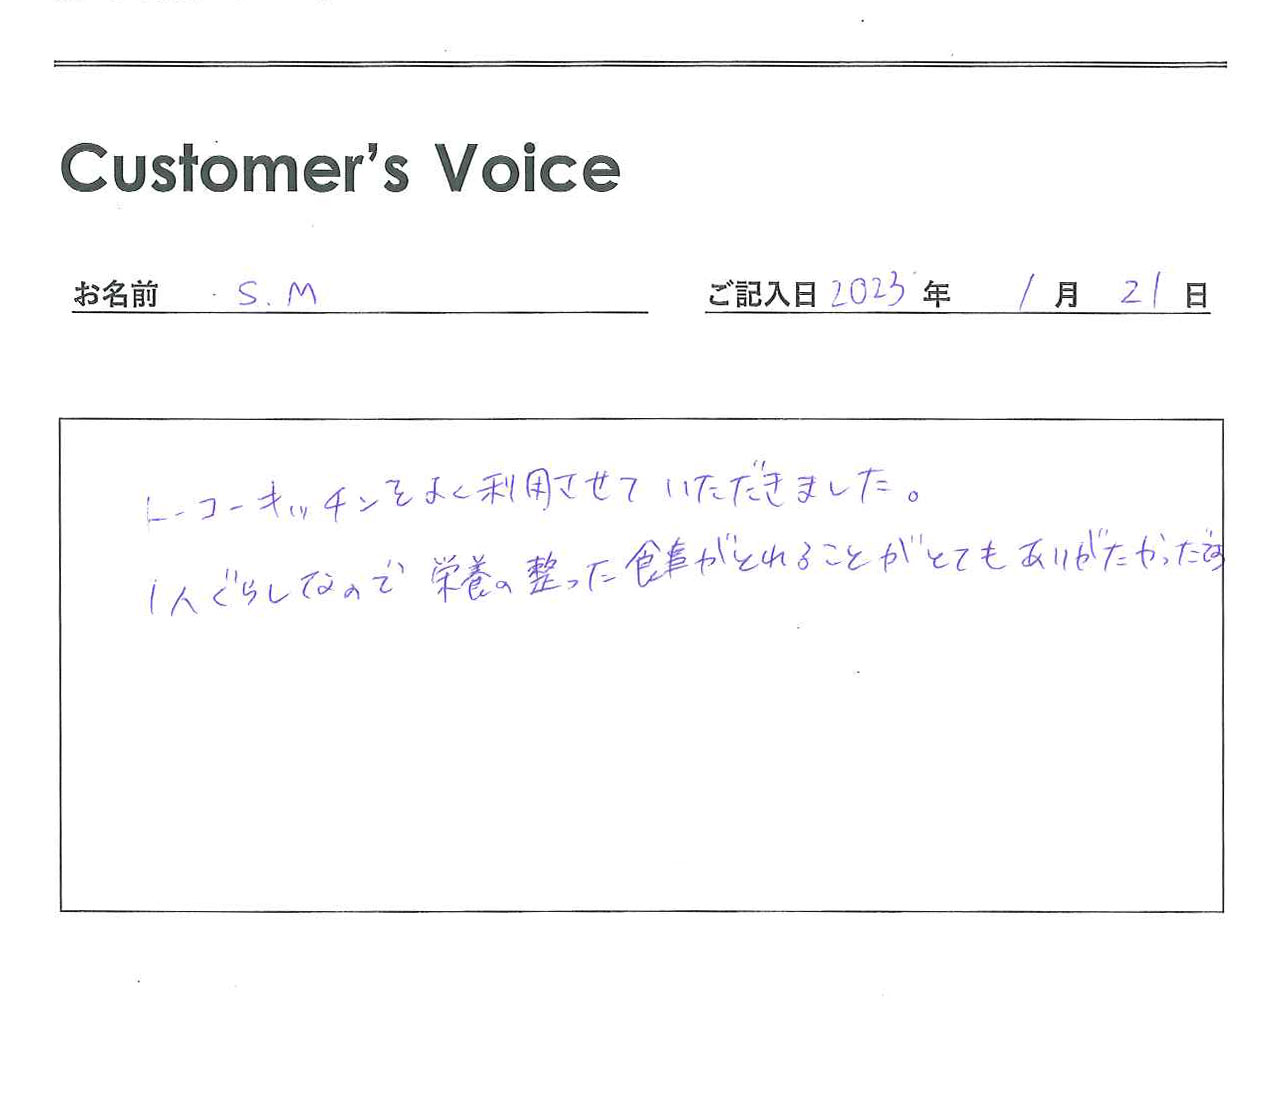 Customer's Voice
お名前 S.M
ご記入日 2023年 1月 21日
レーコーキッチンをよく利用させていただきました。
1人ぐらしなので栄養の整った食事がとれることがとてもありがたかったです